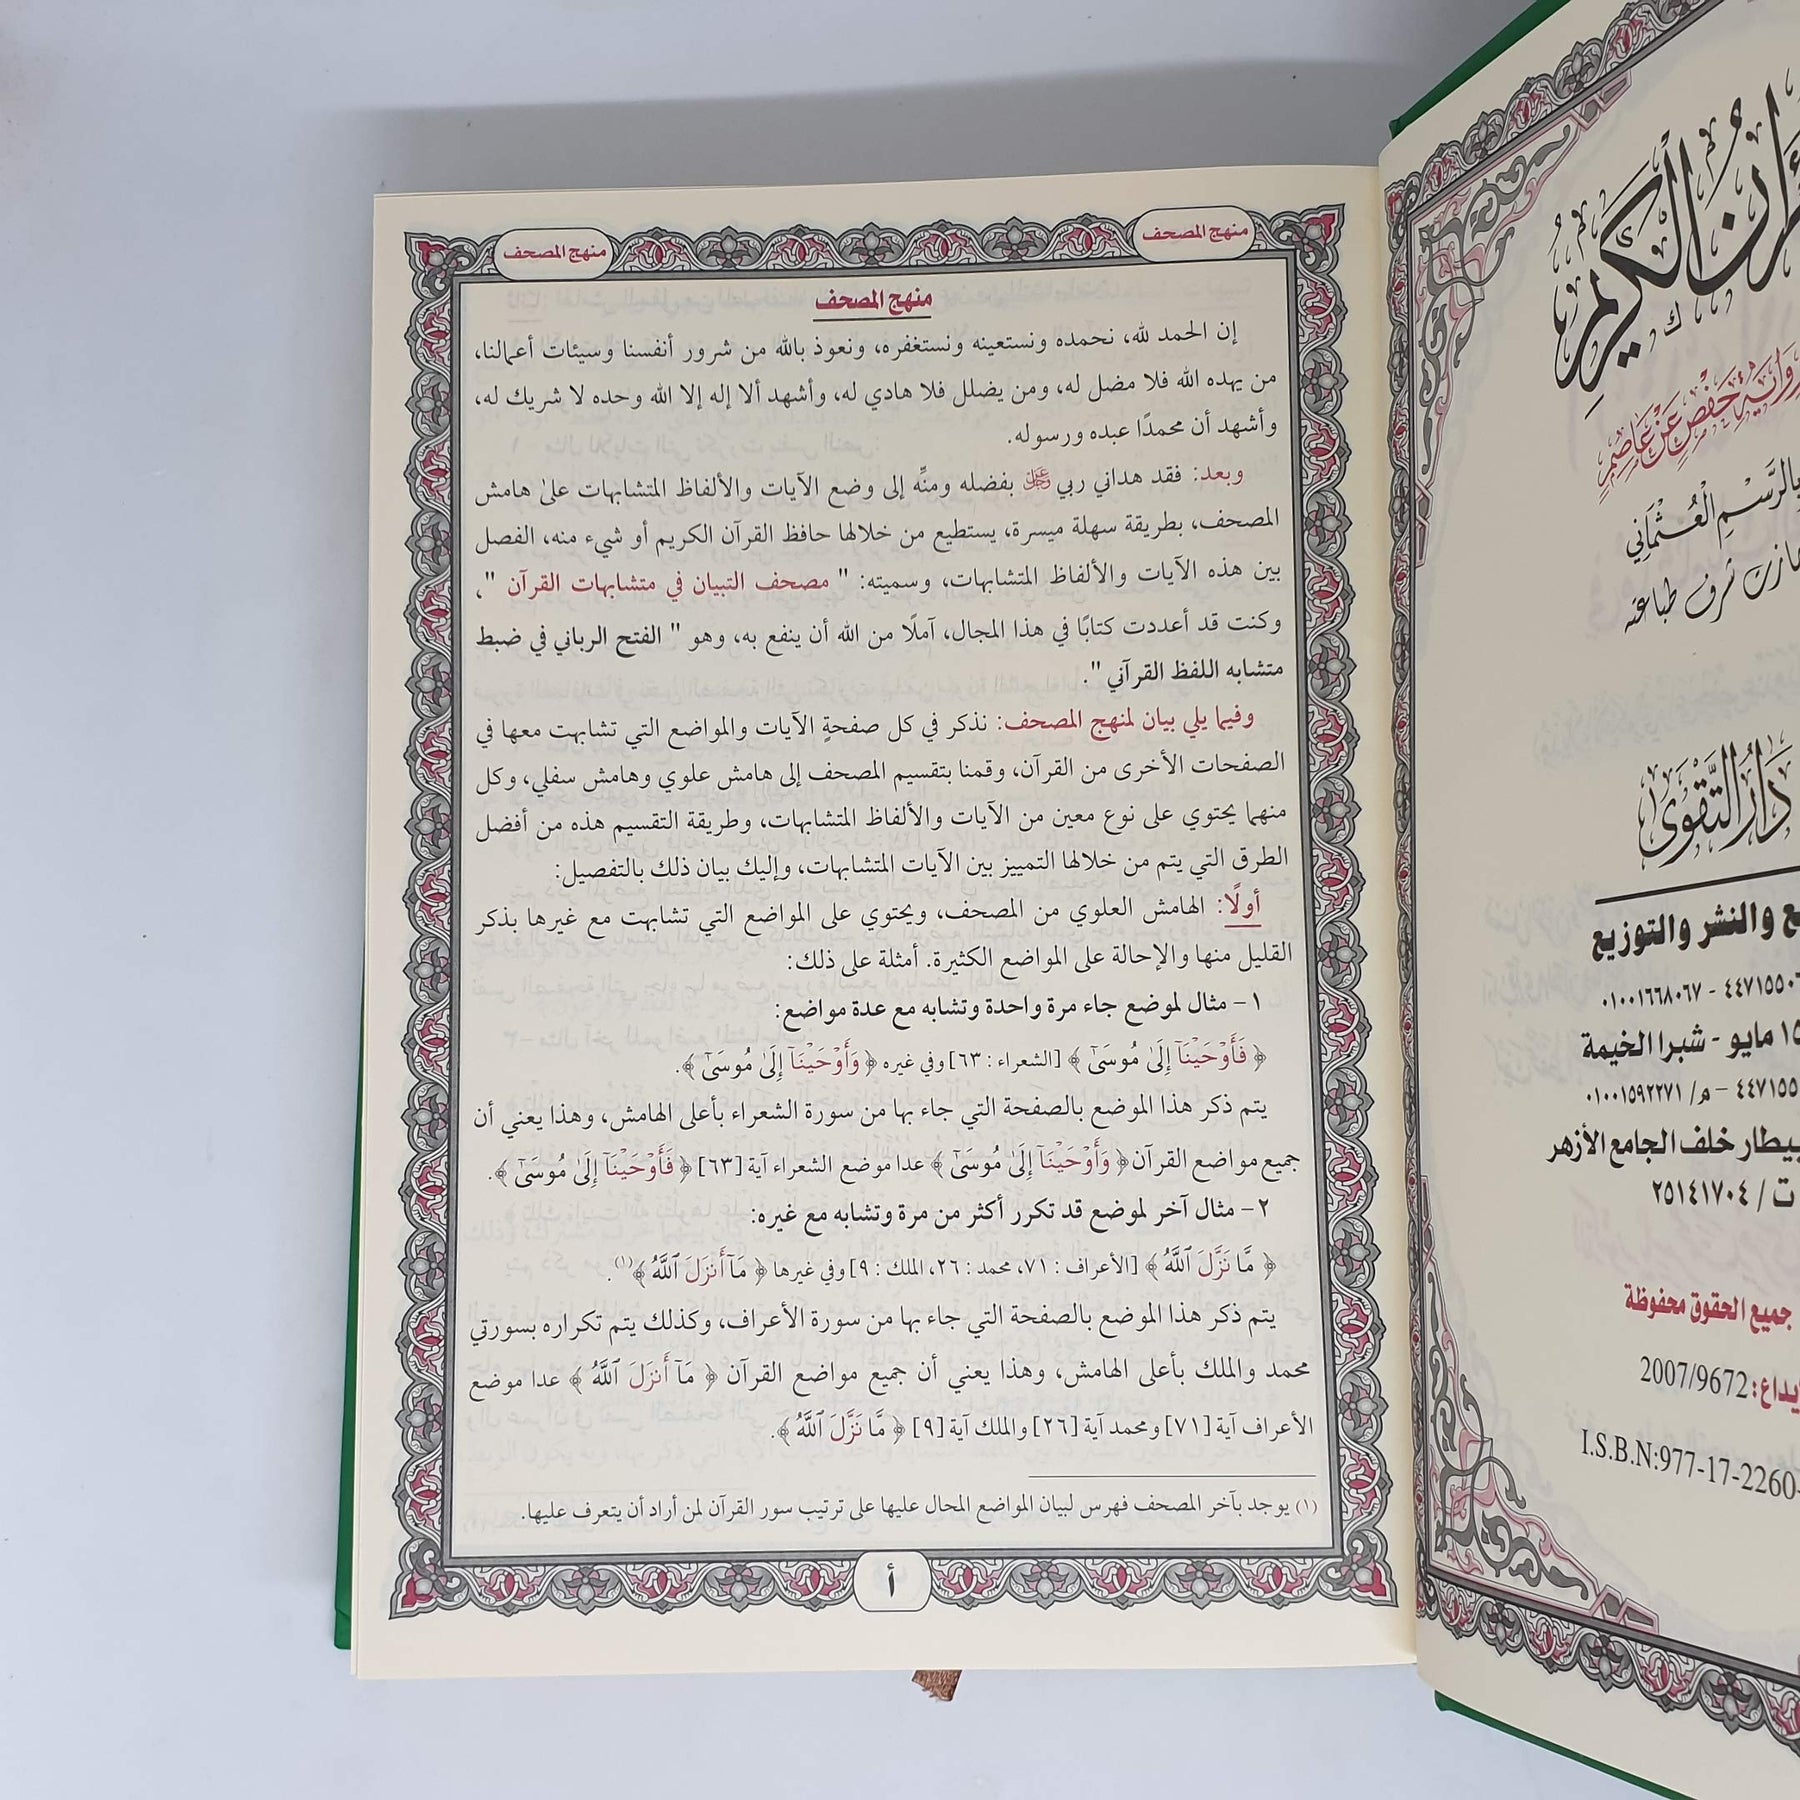 ءان الكريم
رواية حفص عن عاصم
بالرسم العثماني
حازت شرف طباعته
دار التقوى
والنشر والتوزيع
٤٤٧١٥٥٠ - ٠١٠٠١٦٦٨٠٦٧
١٥ مايو - شبرا الخيمة
٤٤٧١٥٥ – م/ ٠١٠٠١٥٩٢٢٧١
البيطار خلف الجامع الأزهر
ت / ٢٥١٤١٧٠٤
جميع الحقوق محفوظة
يداع: 2007/9672
I.S.B.N:977-17-2260-
منهج المصحف
منهج المصحف
منهج المصحف
إن الحمد لله، نحمده ونستعينه ونستغفره، ونعوذ بالله من شرور أنفسنا وسيئات أعمالنا،
من يهده الله فلا مضل له، ومن يضلل فلا هادي له، وأشهد ألا إله إلا الله وحده لا شريك له،
وأشهد أن محمدًا عبده ورسوله.
وبعد: فقد هداني ربي عز وجل بفضله ومنِّه إلى وضع الآيات والألفاظ المتشابهات علىٰ هامش
المصحف، بطريقة سهلة ميسرة، يستطيع من خلالها حافظ القرآن الكريم أو شيء منه، الفصل
بين هذه الآيات والألفاظ المتشابهات، وسميته: " مصحف التبيان في متشابهات القرآن "،
وكنت قد أعددت كتابًا في هذا المجال، آملًا من الله أن ينفع به، وهو " الفتح الرباني في ضبط
متشابه اللفظ القرآني ".
وفيما يلي بيان لمنهج المصحف: نذكر في كل صفحةٍ الآيات والمواضع التي تشابهت معها في
الصفحات الأخرى من القرآن، وقمنا بتقسيم المصحف إلى هامش علوي وهامش سفلي، وكل
منهما يحتوي على نوع معين من الآيات والألفاظ المتشابهات، وطريقة التقسيم هذه من أفضل
الطرق التي يتم من خلالها التمييز بين الآيات المتشابهات، وإليك بيان ذلك بالتفصيل:
أولًا: الهامش العلوي من المصحف، ويحتوي على المواضع التي تشابهت مع غيرها بذكر
القليل منها والإحالة على المواضع الكثيرة. أمثلة على ذلك:
١ – مثال لموضع جاء مرة واحدة وتشابه مع عدة مواضع:
﴿ فَأَوْحَيْنَآ إِلَىٰ مُوسَىٰٓ ﴾ [الشعراء : ٦٣] وفي غيره ﴿ وَأَوْحَيْنَآ إِلَىٰ مُوسَىٰٓ ﴾.
يتم ذكر هذا الموضع بالصفحة التي جاء بها من سورة الشعراء بأعلى الهامش، وهذا يعني أن
جميع مواضع القرآن ﴿ وَأَوْحَيْنَآ إِلَىٰ مُوسَىٰٓ ﴾ عدا موضع الشعراء آية [٦٣] ﴿ فَأَوْحَيْنَآ إِلَىٰ مُوسَىٰٓ ﴾.
٢ – مثال آخر لموضع قد تكرر أكثر من مرة وتشابه مع غيره:
﴿ مَّا نَزَّلَ ٱللَّهُ ﴾ [الأعراف : ٧١، محمد : ٢٦، الملك : ٩] وفي غيرها ﴿ مَآ أَنزَلَ ٱللَّهُ ﴾(١).
يتم ذكر هذا الموضع بالصفحة التي جاء بها من سورة الأعراف، وكذلك يتم تكراره بسورتي
محمد والملك بأعلى الهامش، وهذا يعني أن جميع مواضع القرآن ﴿ مَآ أَنزَلَ ٱللَّهُ ﴾ عدا موضع
الأعراف آية [٧١] ومحمد آية [٢٦] والملك آية [٩] ﴿ مَّا نَزَّلَ ٱللَّهُ ﴾.
(١) يوجد بآخر المصحف فهرس لبيان المواضع المحال عليها على ترتيب سور القرآن لمن أراد أن يتعرف عليها.
أ